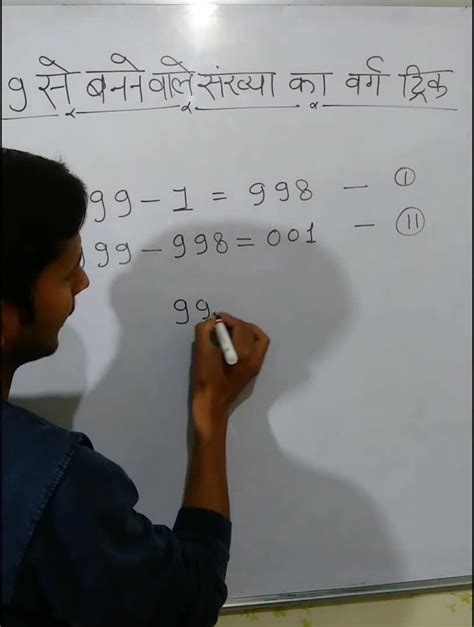 9 से बनने वाले संख्या का वर्ग ट्रिक
99 - 1 = 998 - I
99 - 998 = 001 - II
99